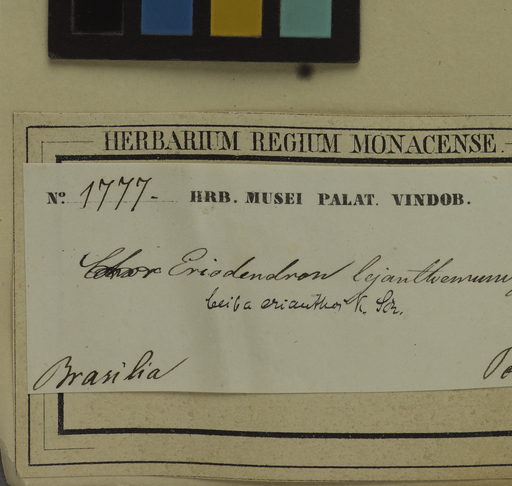 HERBARIUM REGIUM MONACENSE.
No. 1777. HRB. MUSEI PALAT. VINDOB.
Eriodendron lejanthemum
Ceiba erianthos K. Sch.
Brasilia